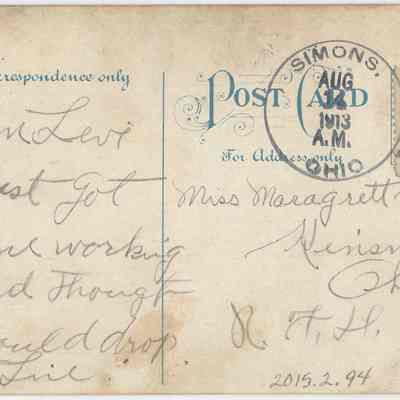 rrespondence only
m Levi
ust got
ne working
d Thought
ould drop
Line.
POST CARD
For Address only
SIMONS.
AUG
14
1913
A.M.
OHIO
Miss Maragrett
Kinsm
Oh
R. F. H.
2015.2.94